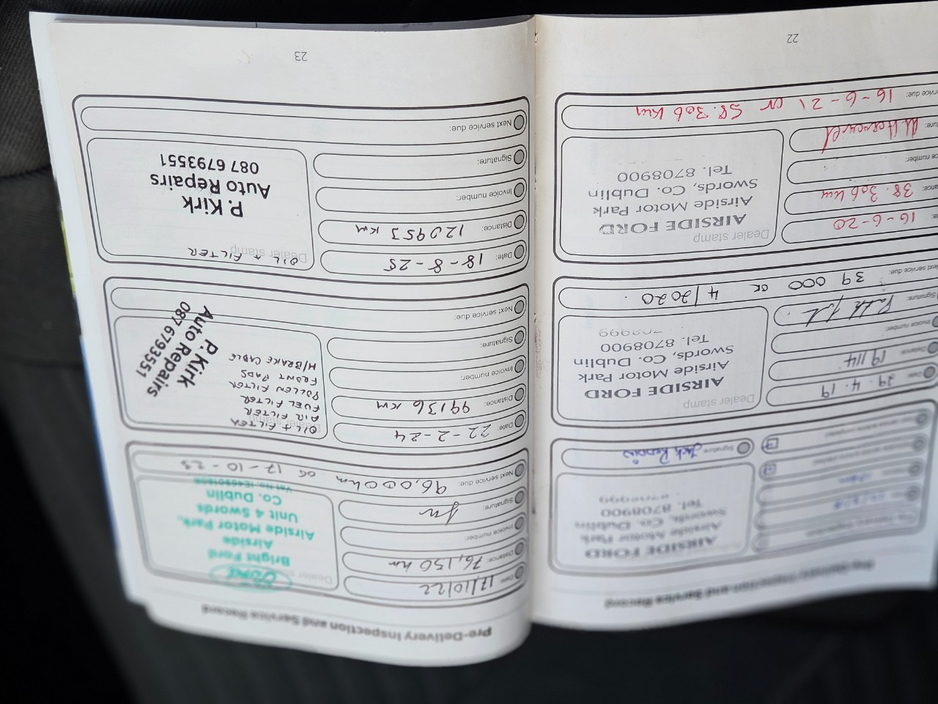 Pre-Delivery Inspection and Service Record
AIRSIDE FORD
Airside Motor Park
Swords, Co. Dublin
Tel. 8708900
Signature:
Date: 29.4.19
Distance: 19114
Invoice number:
Signature:
Dealer stamp
AIRSIDE FORD
Airside Motor Park
Swords, Co. Dublin
Tel. 8708900
Next service due: 39 000 or 4/2020.
16-6-20
38.306 km
Dealer stamp
AIRSIDE FORD
Airside Motor Park
Swords, Co. Dublin
Tel. 8708900
service due: 16-6-21 or 58.306 km
22
Pre-Delivery Inspection and Service Record
Date: 17/10/22
Distance: 76,150 km
Invoice number:
Signature:
Dealer
Ford
Bright Ford
Airside
Airside Motor Park,
Unit 4 Swords
Co. Dublin
Next service due: 96,000km or 17-10-23
Date: 22-2-24
Distance: 99136 KM
Invoice number:
Signature:
OIL + FILTER
AIR FILTER
FUEL FILTER
POLLEN FILTER
FRONT PADS
H/BRAKE CABLE
P. Kirk
Auto Repairs
087 6793551
Next service due:
Date: 18-8-25
Distance: 120953 KM
Invoice number:
Signature:
Dealer stamp
OIL + FILTER
P. Kirk
Auto Repairs
087 6793551
Next service due:
23